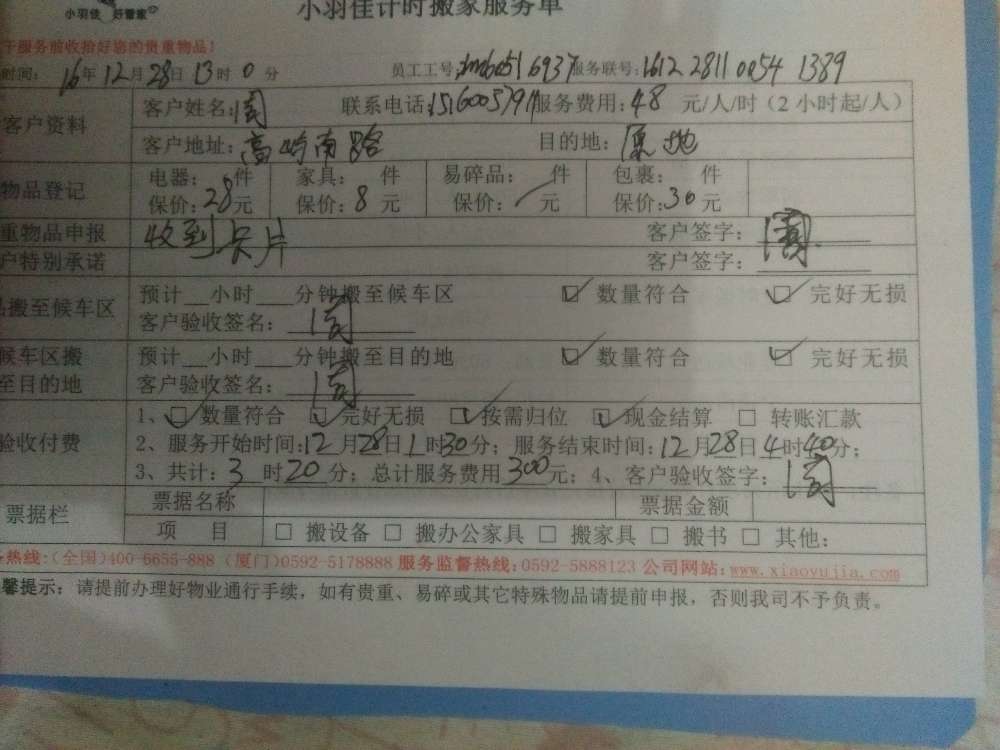 小羽佳 好管家
小羽佳计时搬家服务单
服务前收拾好您的贵重物品!
时间: 16年12月28日13时0分 员工工号: 服务联号:1612 2811 0054 1389
客户资料 客户姓名:周 联系电话: 服务费用:48 元/人/时(2小时起/人)
客户地址:高崎南路 目的地:原地
物品登记 电器: 件 家具: 件 易碎品: 件 包裹: 件
保价:28元 保价:8元 保价:/元 保价:30元
重物品申报 收到卡片 客户签字:周
户特别承诺 客户签字:
搬至候车区 预计__小时___分钟搬至候车区 ☑ 数量符合 ☑ 完好无损
客户验收签名:周
候车区搬 预计__小时___分钟搬至目的地 ☑ 数量符合 ☑ 完好无损
至目的地 客户验收签名:周
验收付费 1、☑数量符合 ☑完好无损 ☑按需归位 ☑现金结算 □ 转账汇款
2、服务开始时间:12月28日1时30分;服务结束时间:12月28日4时40分;
3、共计:3时20分;总计服务费用300元;4、客户验收签字:周
票据栏 票据名称 票据金额
项 目 □ 搬设备 □ 搬办公家具 □ 搬家具 □ 搬书 □ 其他:
热线:(全国)400-6655-888 (厦门)0592-5178888 服务监督热线:0592-5888123 公司网站:www.xiaoyujia.com
馨提示:请提前办理好物业通行手续,如有贵重、易碎或其它特殊物品请提前申报,否则我司不予负责。